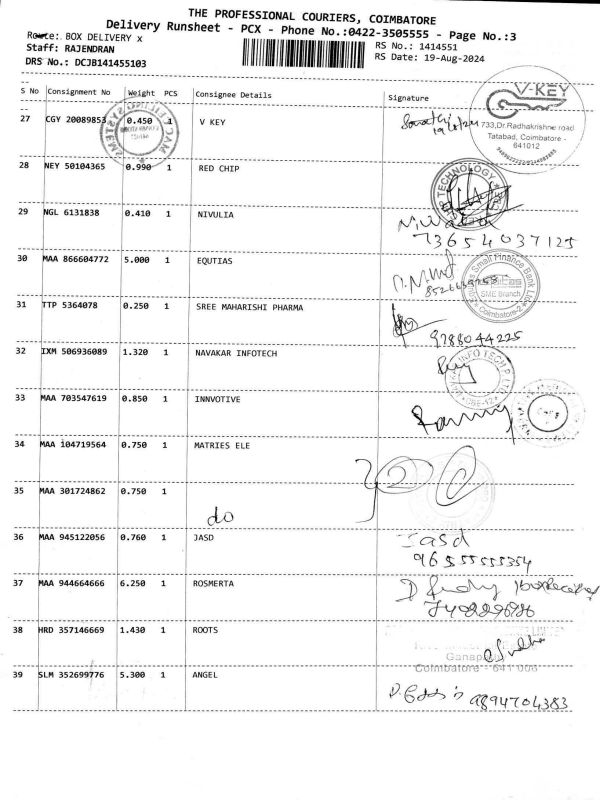 THE PROFESSIONAL COURIERS, COIMBATORE
Delivery Runsheet - PCX - Phone No.:0422-3505555 - Page No.:3
Route: BOX DELIVERY x
RS No.: 1414551
Staff: RAJENDRAN
RS Date: 19-Aug-2024
DRS No.: DCJB141455103
S No Consignment No Weight PCS Consignee Details Signature
27 CGY 20089853 0.450 1 V KEY
V-KEY
733,Dr.Radhakrishne road
Tatabad, Coimbatore -
641012
28 NEY 50104365 0.990 1 RED CHIP
29 NGL 6131838 0.410 1 NIVULIA
73654037125
30 MAA 866604772 5.000 1 EQUTIAS
Small Finance Bank Ltd
SME Branch
Coimbatore-2
31 TTP 5364078 0.250 1 SREE MAHARISHI PHARMA
9288044225
32 IXM 506936089 1.320 1 NAVAKAR INFOTECH
33 MAA 703547619 0.850 1 INNVOTIVE
34 MAA 104719564 0.750 1 MATRIES ELE
35 MAA 301724862 0.750 1
do
36 MAA 945122056 0.760 1 JASD
Jasd
96555555354
37 MAA 944664666 6.250 1 ROSMERTA
38 HRD 357146669 1.430 1 ROOTS
Coimbatore - 641 006
39 SLM 352699776 5.300 1 ANGEL
9894704383